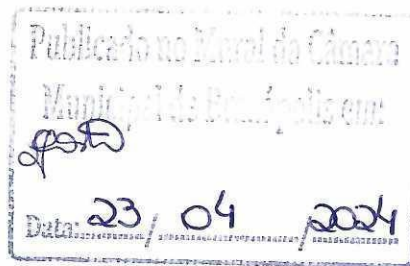 Publicado no Mural da Câmara
Municipal de em:
Data: 23 / 04 / 2024